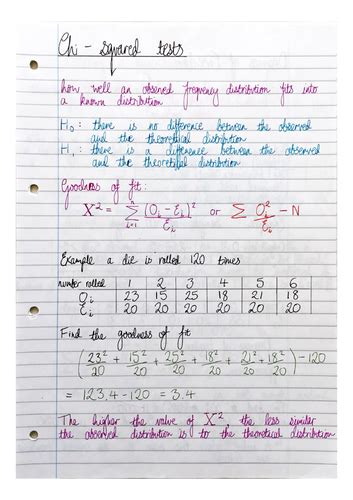 Chi - squared tests
how well an observed frequency distribution fits into
a known distribution
H₀ : there is no difference between the observed
and the theoretical distribution
H₁ : there is a difference between the observed
and the theoretical distribution
Goodness of fit :
X² = Σ_{i=1}^{n} (Oᵢ - Eᵢ)² / Eᵢ or Σ Oᵢ² / Eᵢ - N
Example a die is rolled 120 times
number rolled 1 2 3 4 5 6
Oᵢ 23 15 25 18 21 18
Eᵢ 20 20 20 20 20 20
Find the goodness of fit
(23²/20 + 15²/20 + 25²/20 + 18²/20 + 21²/20 + 18²/20) - 120
= 123.4 - 120 = 3.4
The higher the value of X² the less similar
the observed distribution is to the theoretical distribution